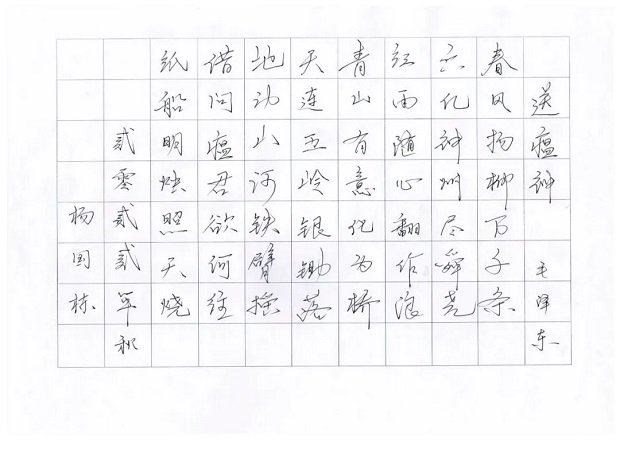 送瘟神 毛泽东
春风扬柳万千条
六亿神州尽舜尧
红雨随心翻作浪
青山有意化为桥
天连五岭银锄落
地动山河铁臂摇
借问瘟君欲何往
纸船明烛照天烧
贰零贰贰年秋
杨国栋